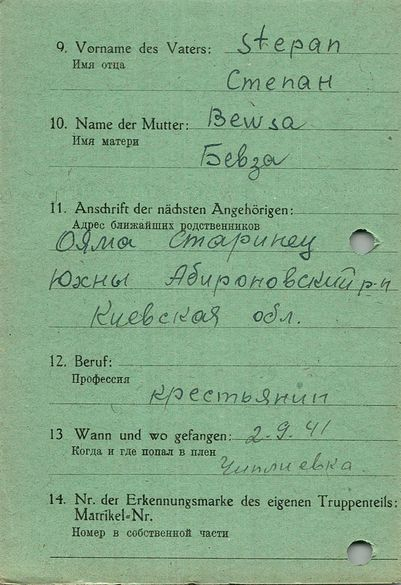 9. Vorname des Vaters: Stepan
Имя отца
Степан
10. Name der Mutter: Bewsa
Имя матери
Бевза
11. Anschrift der nächsten Angehörigen:
Адрес ближайших родственников
Старинец
Юхны р-н
Киевская обл.
12. Beruf:
Профессия
крестьянин
13 Wann und wo gefangen: 2.9.41
Когда и где попал в плен
14. Nr. der Erkennungsmarke des eigenen Truppenteils:
Matrikel-Nr.
Номер в собственной части